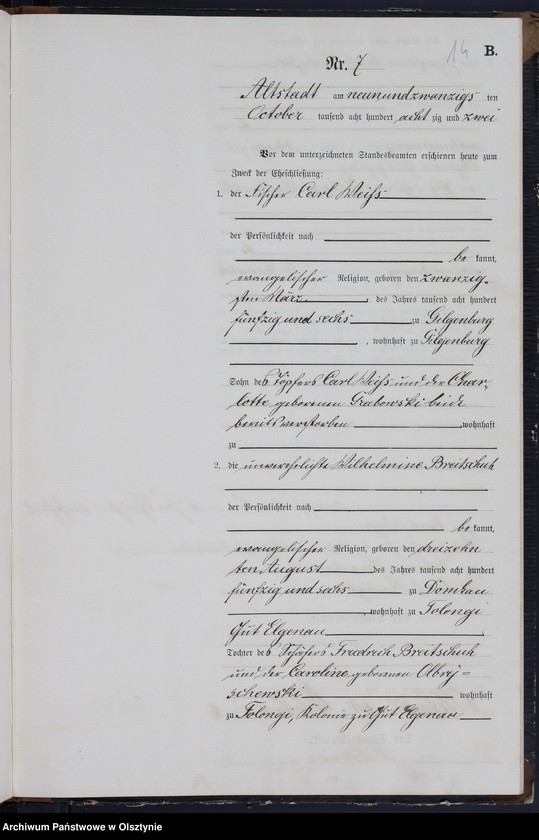 14 B.
Nr. 7
Altstadt am neunundzwanzigs ten
October tausend acht hundert acht zig und zwei
Vor dem unterzeichneten Standesbeamten erschienen heute zum
Zweck der Eheschließung:
1. der Fischer Carl Weiss
der Persönlichkeit nach
be kannt,
evangelischer Religion, geboren den zwanzig-
sten März des Jahres tausend acht hundert
fünfzig und sechs zu Gilgenburg
, wohnhaft zu Gilgenburg
Sohn des Töpfers Carl Weiss und der Char-
lotte geborenen Grabowski beide
bereits verstorben wohnhaft
zu
2. die unverehelichte Wilhelmine Breitschuh
der Persönlichkeit nach
be kannt,
evangelischer Religion, geboren den dreizehn
ten August des Jahres tausend acht hundert
fünfzig und sechs zu Domkau
, wohnhaft zu Folongi
Gut Elgenau
Tochter des Schäfers Friedrich Breitschuh
und der Caroline geborenen Olbrij-
schewski wohnhaft
zu Folongi, Kolonie zu Gut Elgenau
Archiwum Państwowe w Olsztynie